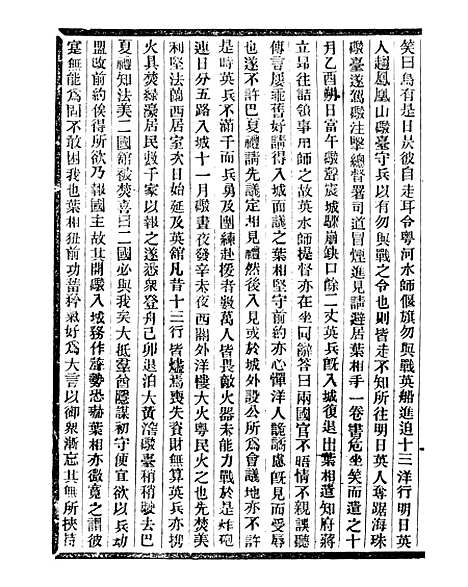 笑曰烏有是日昃彼自走耳令粵河水師偃旗勿與戰英船進迫十三洋行明日英
人趨鳳凰山礮臺守兵以有勿與戰之令也則皆走不知所往明日英人奪踞海珠
礮臺遂駕礮注擊總督署司道冒煙進見請避居葉相手一卷書危坐笑而遣之十
月乙酉朔日當午礮聲震城驟崩缺口餘二丈英兵旣入城復退出葉相遣知府蔣
立昻往詰領事用師之故英水師提督亦在坐同辭答曰兩國官不晤情不親誤聽
傳言屢乖舊好請得入城面議之葉相堅守前約亦心憚洋人譸譎慮旣見而受辱
也遂不許巴夏禮請先議定相見禮然後入見或於城外設公所爲會議地亦不許
是時英兵不滿千而兵勇及團練赴援者數萬人皆畏敵火器未能力戰於是炸砲
連日分五路入城十一月礮晝夜發辛未夜西關外洋樓大火粵民火之也先焚美
利堅法蘭西居室次日始延及英館凡昔十三行皆燼焉喪失資財無算英兵亦擲
火具焚緣濠居民數千家以報之遂悉衆登舟己卯退泊大黃滘礮臺稍稍駛去巴
夏禮知法美二國館被焚喜曰二國必與我矣大抵羣酋隱謀初守便宜欲以兵劫
盟改前約俟得所欲乃報國主故其開礮入城務作虛勢恐嚇葉相亦微窺之謂彼
寔無能爲固不敢困我也葉相狃前功蓄矜氣好爲大言以御衆漸忘其無所挾持